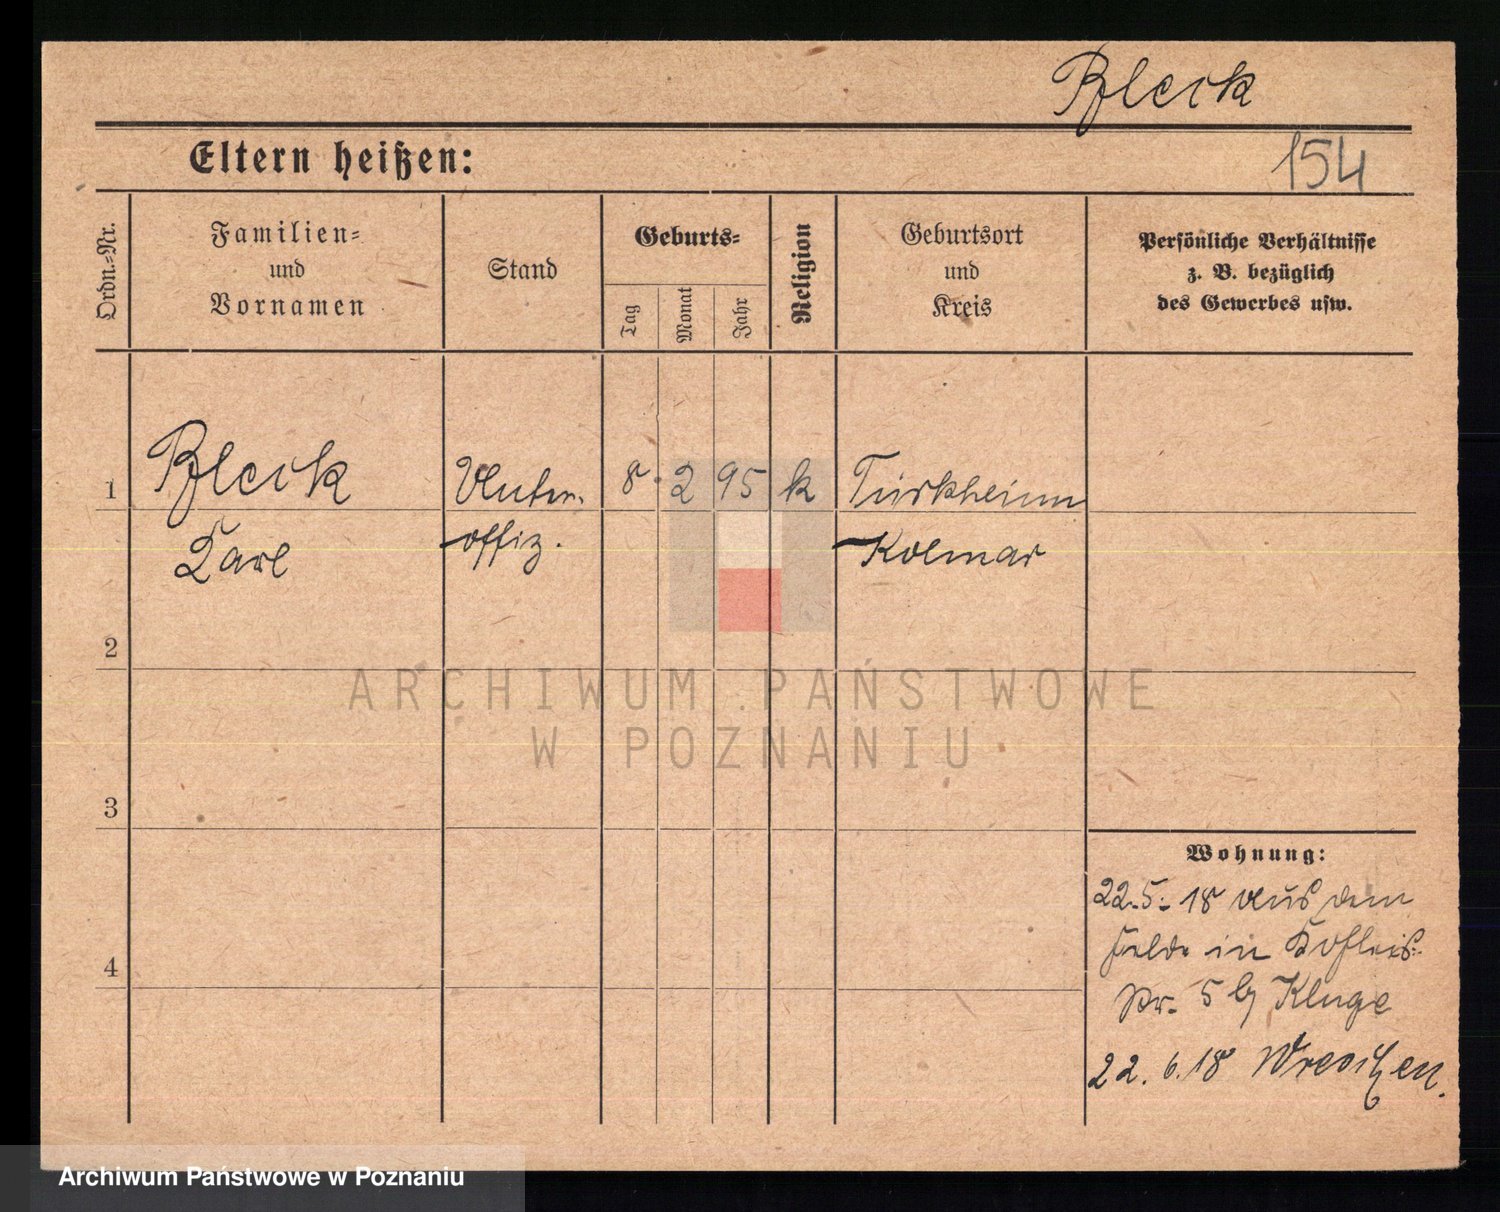 Pfleck
154
Eltern heißen:
Ordn.=Nr.
Familien=
und
Vornamen
Stand
Geburts=
Tag
Monat
Jahr
Religion
Geburtsort
und
Kreis
Persönliche Verhältnisse
z. B. bezüglich
des Gewerbes usw.
1
Pfleck
Unter
8.
2
95
k
Türkheim
Karl
offiz.
Kolmar
2
3
4
Wohnung:
22.5.18 aus dem
Felde in
Str. 5 b/ Kluge
22.6.18 Wreschen.
ARCHIWUM PAŃSTWOWE
W POZNANIU
Archiwum Państwowe w Poznaniu